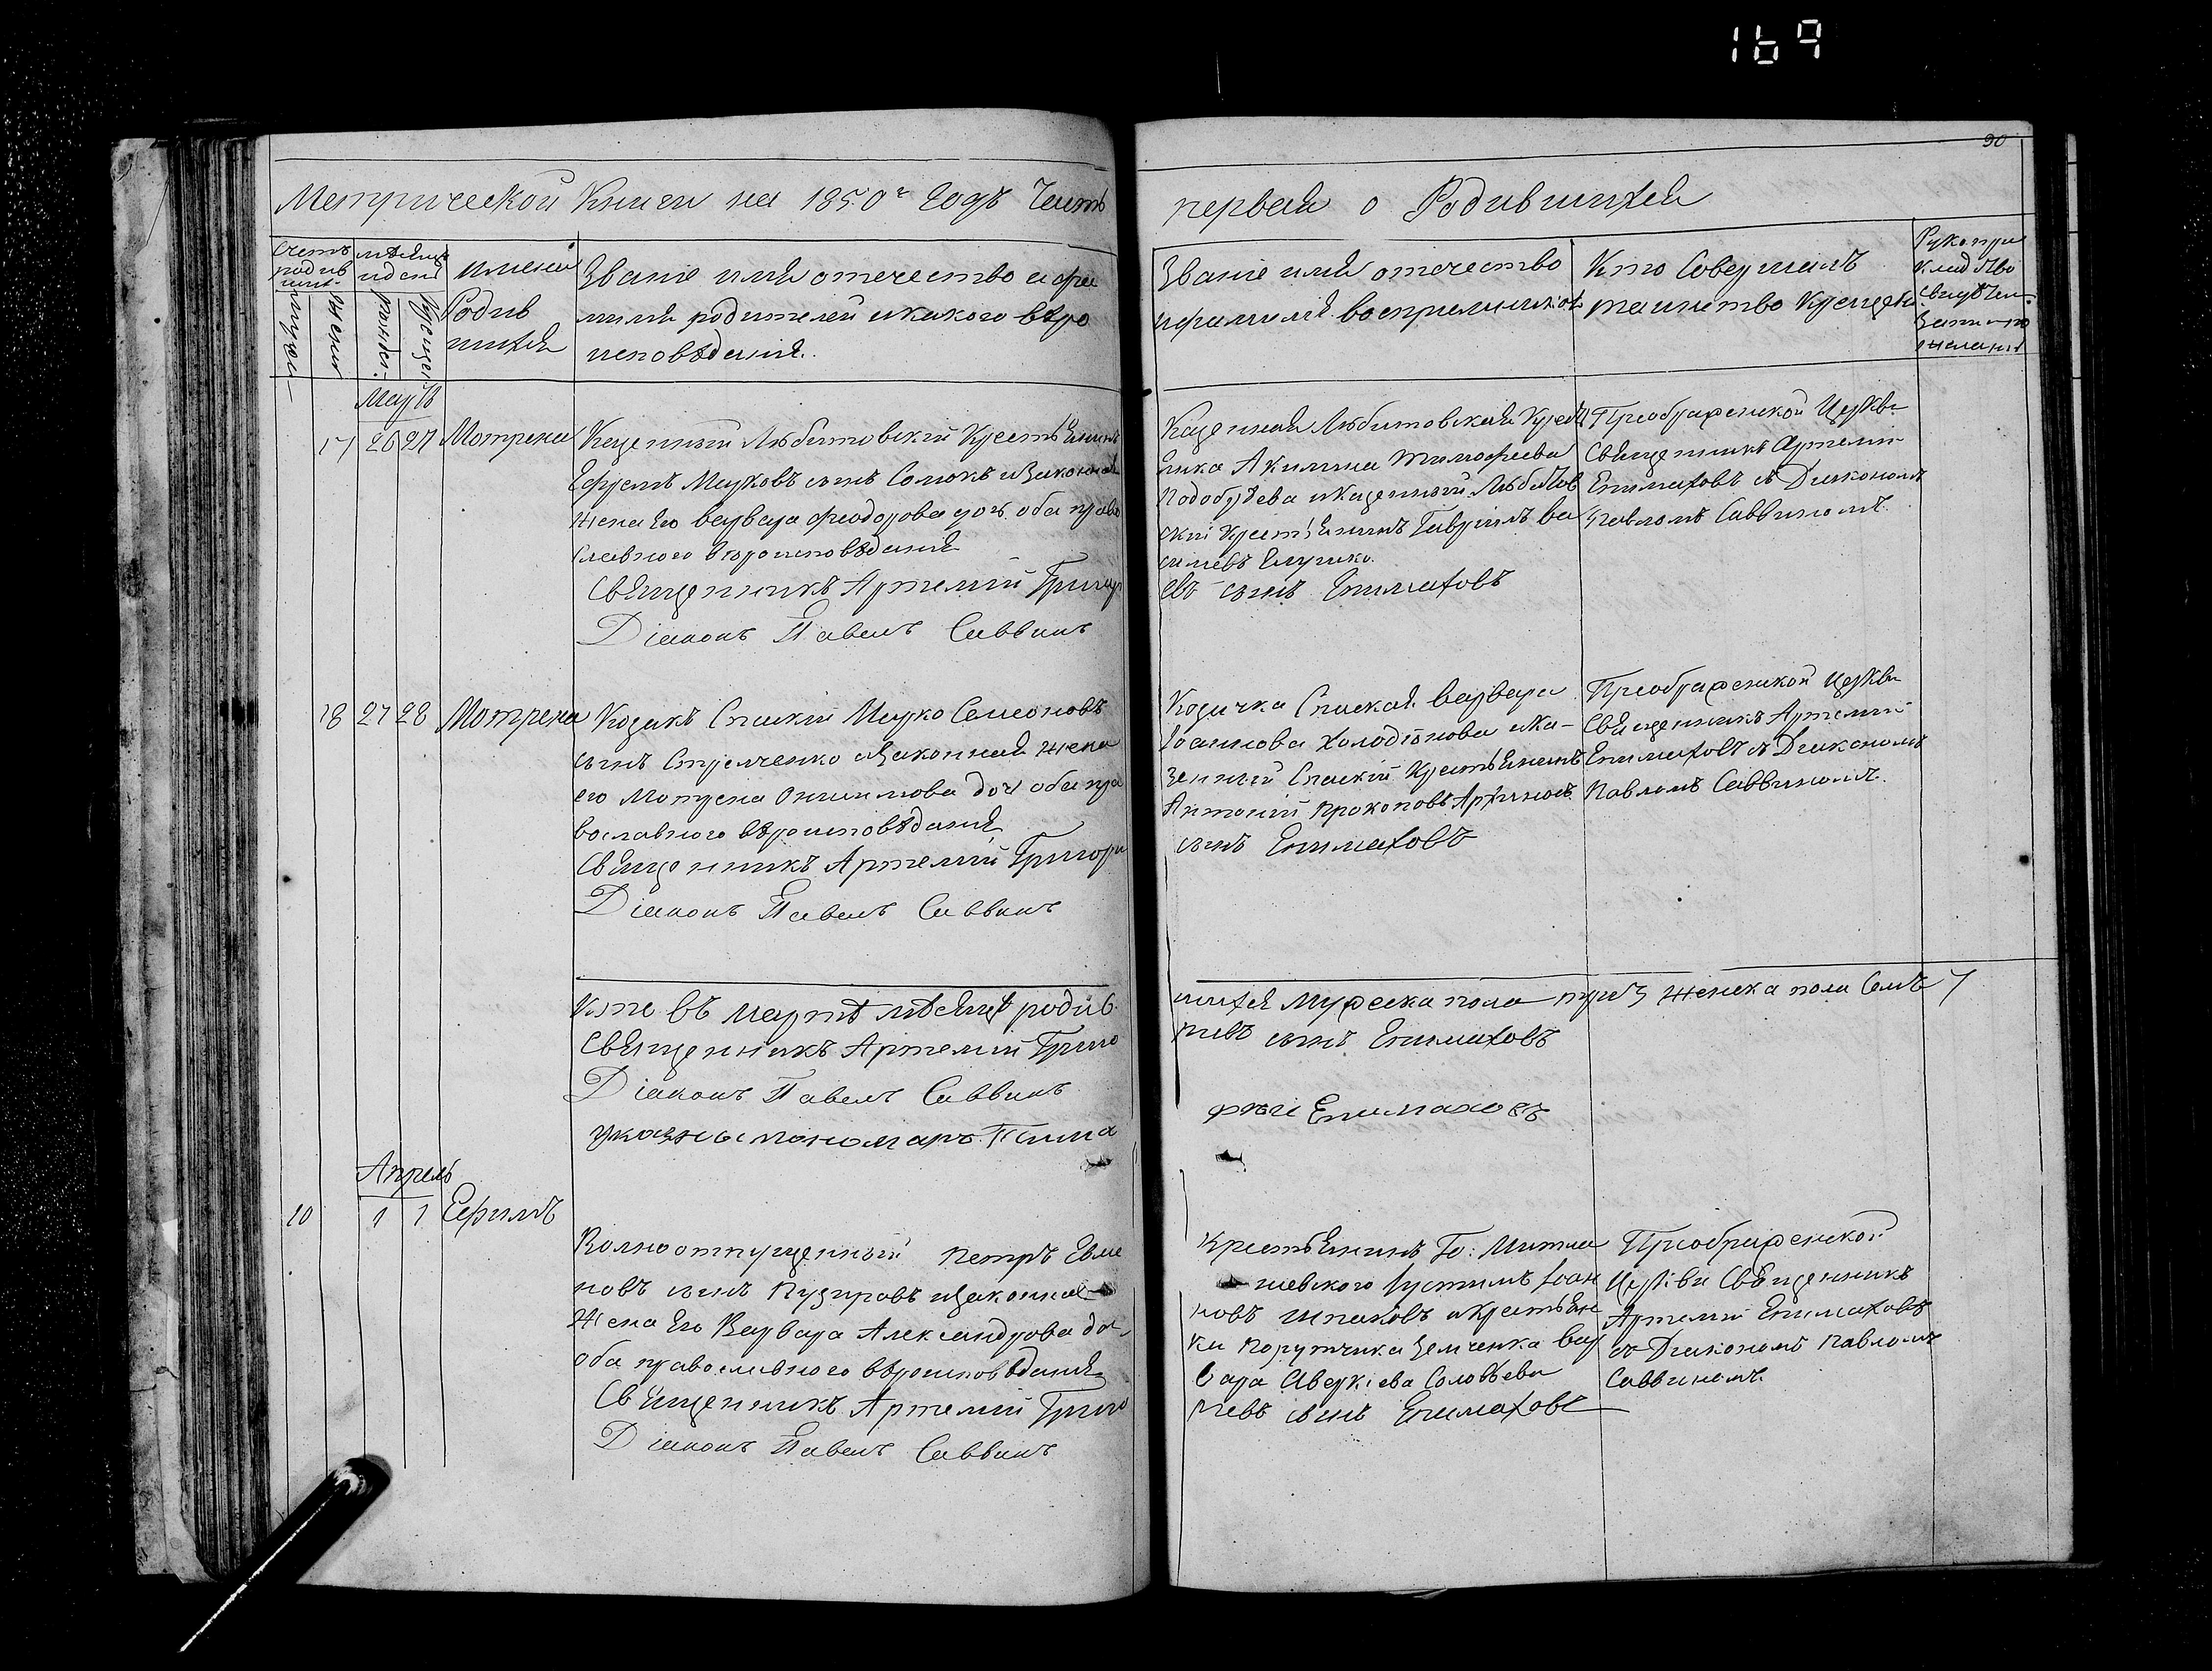 169
90
Метрической Книги на 1850й Годъ Часть
первая о Родившихся
Счетъ
родив
ших.
мѣсяцъ
и день
имена
Родив
шихся
Званіе имя отечество и фа
милія родителей и какого вѣро
исповѣданія.
Званіе имя отечество
и фамилія воспріемниковъ
Кто Совершалъ
таинство Крещен.
Рукопри
кладство
свидѣтел.
записи по
желанію
мужеск.
женска
рожден.
Крещен.
Мартъ
17 26 27 Мотрена
Казенный Любитовскій Крестьянинъ
Ефремъ Марковъ сынъ Сомокъ и Законная
жена Его Варвара Феодорова доч. оба право
славного Вѣроисповѣданія
Священникъ Артемій Григор
Діаконъ Павелъ Саввинъ
Казенная Любитовская Крестья
нка Акилина Тимофеева
Подобуева и Казенный Любитов
скій Крестьянинъ Гавріилъ Ва
силевъ
евъ сынъ Епимаховъ
Преображенской Церкви
Священникъ Артемій
Епимаховъ съ Діакономъ
Павломъ Саввиномъ.
18 27 28 Мотрена
Козакъ Спаскій Марко Семеоновъ
сынъ Стрелченко и Законная жена
его Мотрена Онисимова доч оба пра
вославного вѣроисповѣданія
Священникъ Артемій Григори
Діаконъ Павелъ Саввинъ
Козачка Спаская Варвара
Іоаннова Холодівнова и Ка-
зенный Спаскій Крестьянинъ
Антоній Прокоповъ
сынъ Епимаховъ
Преображенской Церкви
Священникъ Артемій
Епимаховъ съ Діакономъ
Павломъ Саввиномъ.
Кто въ мартѣ мѣсяцѣ родив
Священникъ Артемій Григо
Діаконъ Павелъ Саввинъ
указный пономарь Тимо
шихся мужеска пола три 3 женска пола Семъ 7
риевъ сынъ Епимаховъ
фѣй Епимаховъ
Апрель
10 1 1 Ефимъ
Волноотпущенный Петръ Евме
новъ сынъ Пузировъ и Законная
Жена Его Варвара Александрова доч
оба православного вѣроисповѣданія
Священникъ Артемій Григо
Діаконъ Павелъ Саввинъ
Крестьянинъ Го: Митка
шевского Іустимъ Іоан
новъ Шпаковъ и Крестьян
ка Порутчика Земченка Вар
вара Аверкіева Соловьева
риевъ сынъ Епимаховъ
Преображенской
Церкви Священникъ
Артемій Епимаховъ
съ Діакономъ Павломъ
Саввиномъ.